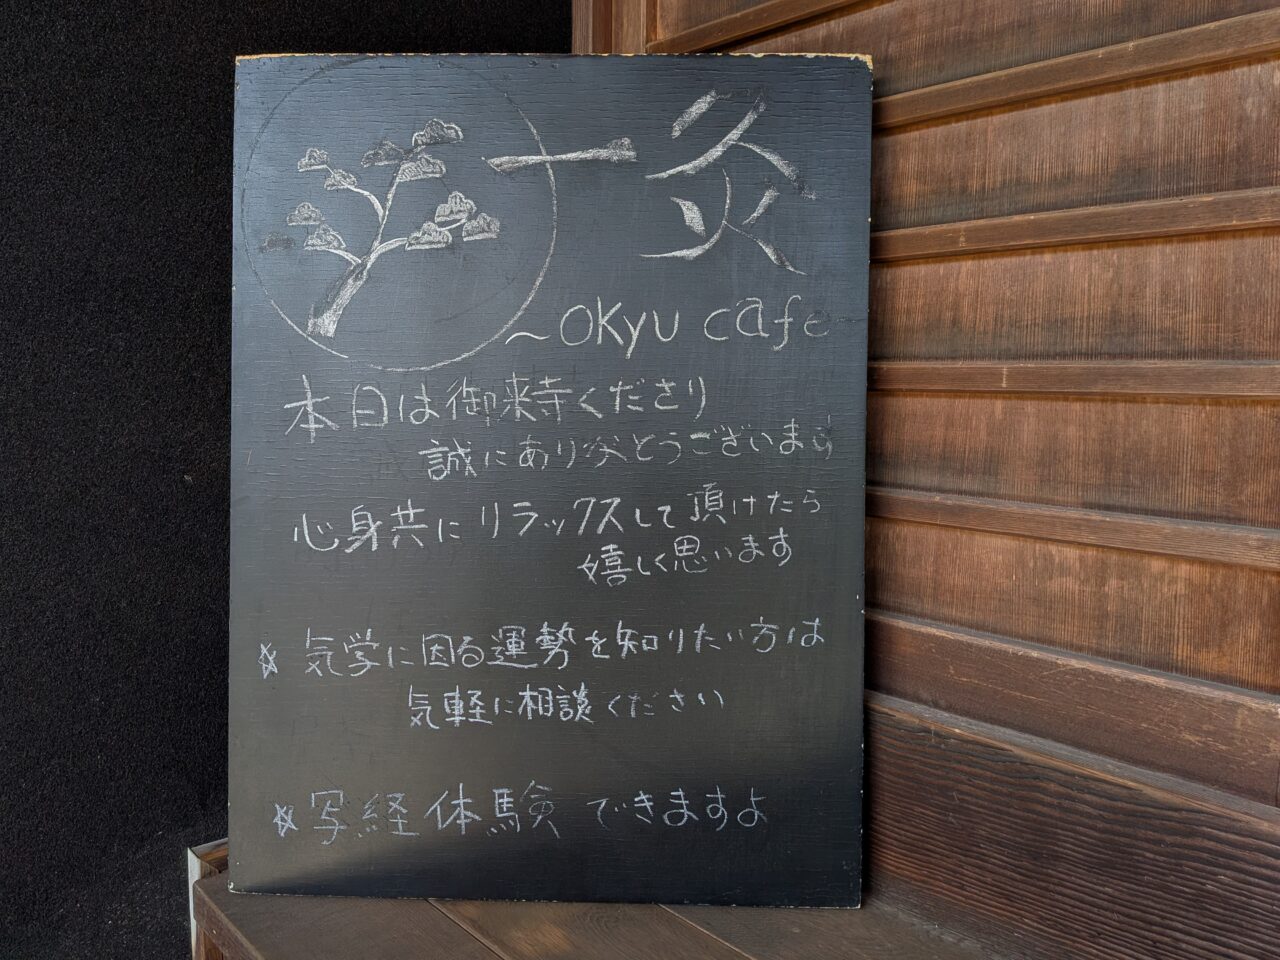 一灸
～okyu cafe～
本日は御来寺くださり
誠にありがとうございます
心身共にリラックスして頂けたら
嬉しく思います
☆気学に因る運勢を知りたい方は
気軽に相談ください
☆写経体験できますよ